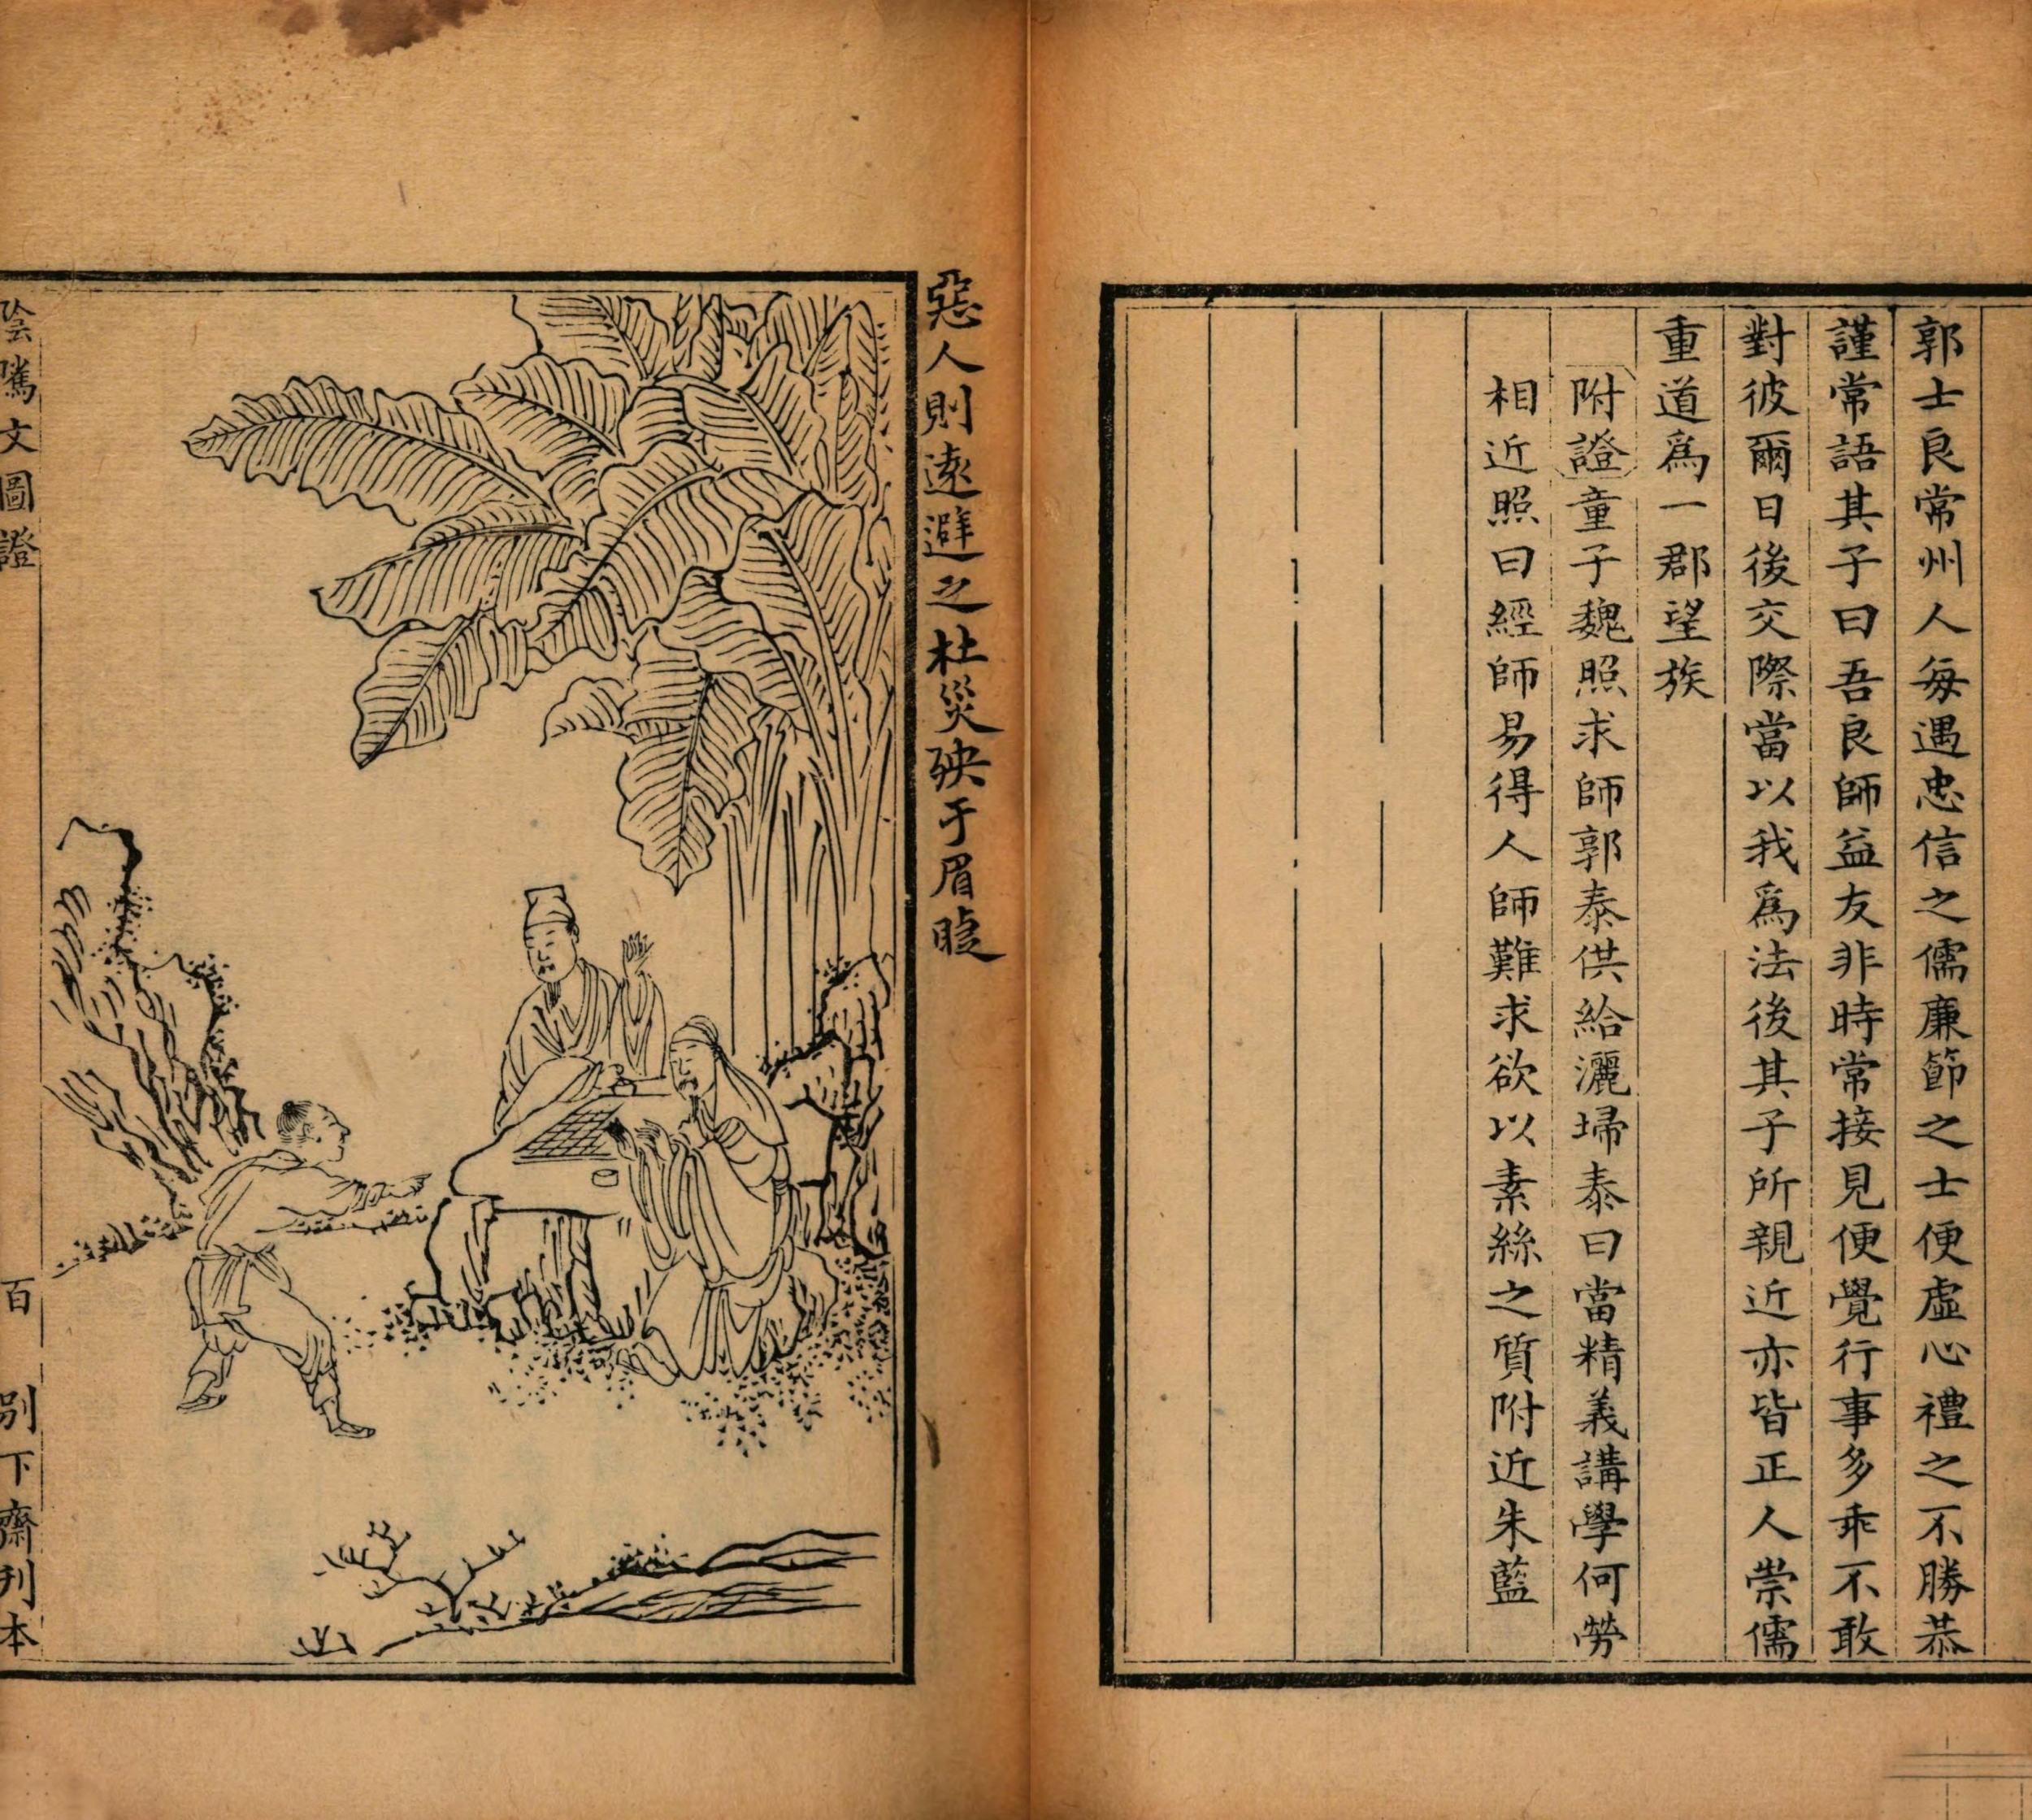 郭士良常州人每遇忠信之儒廉節之士便虛心禮之不勝恭
謹常語其子曰吾良師益友非時常接見便覺行事多乖不敢
對彼爾日後交際當以我爲法後其子所親近亦皆正人崇儒
重道爲一郡望族
附證童子魏照求師郭泰供給灑埽泰曰當精義講學何勞
相近照曰經師易得人師難求欲以素絲之質附近朱藍
惡人則遠避之杜災殃于眉睫
陰騭文圖證
百
別下齋刋本